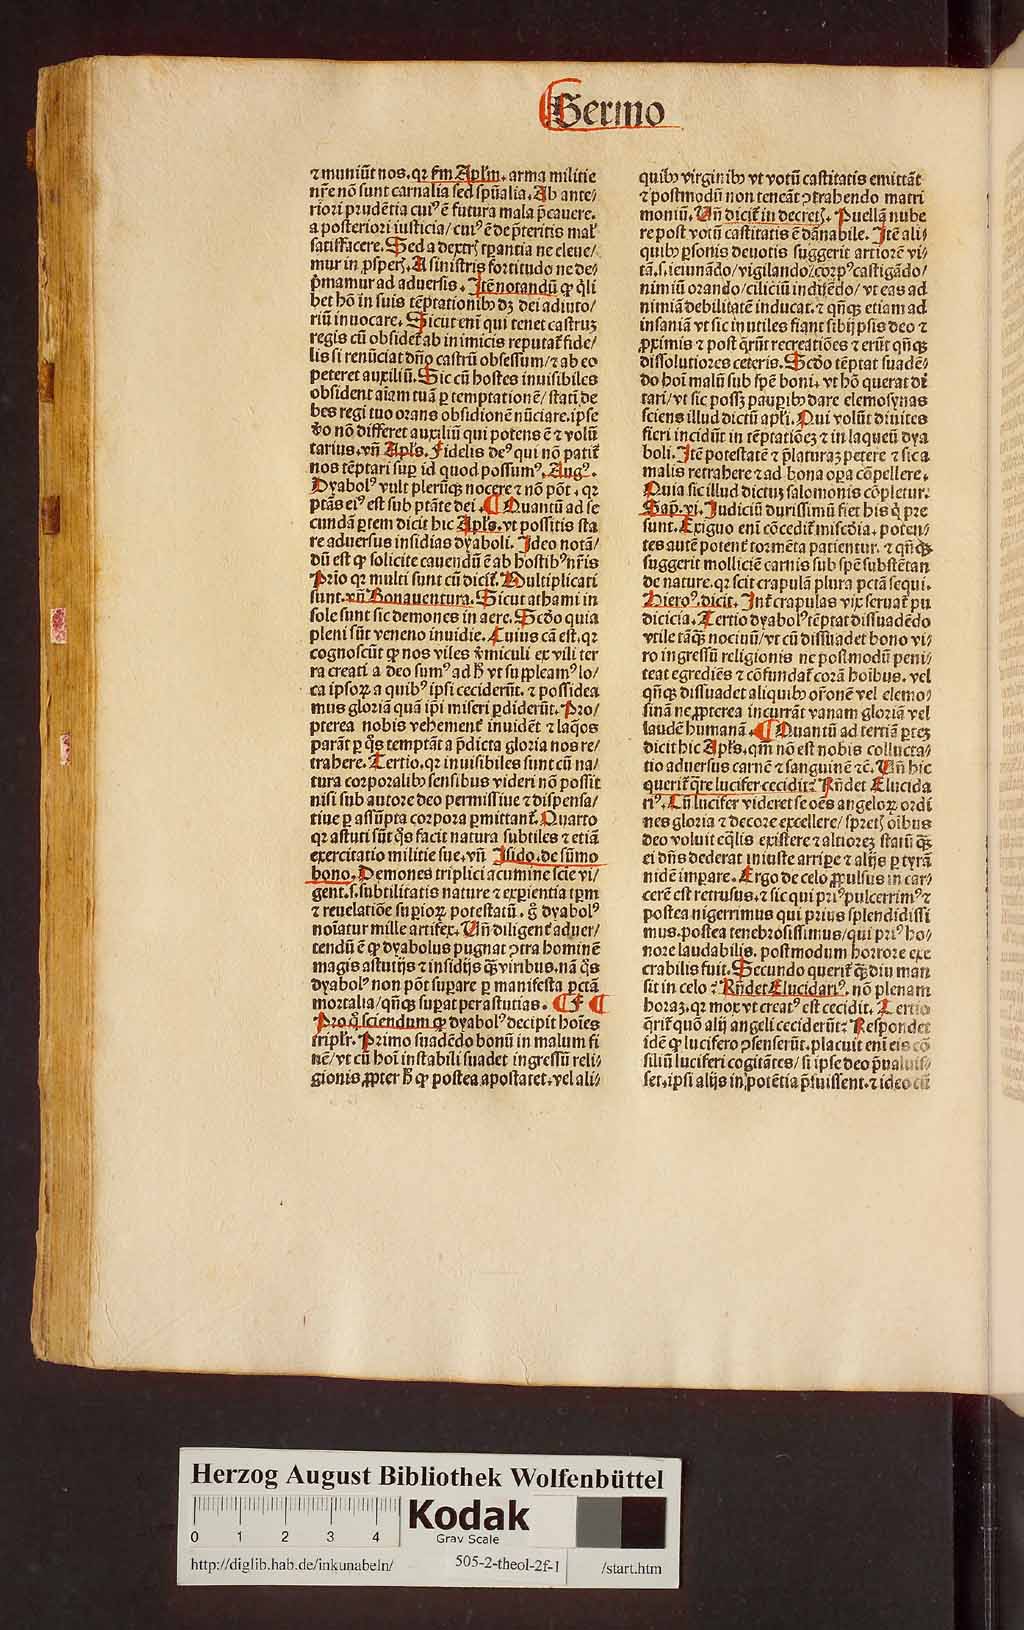 Sermo
⁊ muniu̅t nos. qꝛ ẜm Apl̓m. arma militie
nr̅e no̅ sunt carnalia sed sp̅ualia. Ab ante/
riori prude̅tia cuiꝰ e̅ futura mala p̅cauere.
a posteriori iusticia/ cuiꝰ e̅ de p̅teritis mal̓
satisfacere. Sed a dextrꝭ tꝑantia ne eleue/
mur in ꝓsperꝭ. A sinistris fortitudo ne de/
p̅mamur ad aduersis. Ite̅ notandu̅ ꝙ q̓li
bet ho̅ in suis te̅ptationibꝰ dꝫ dei adiuto/
riu̅ inuocare. Sicut eni̅ qui tenet castruꝫ
regis cu̅ obsidet̓ ab inimicis reputat̓ fide/
lis si renu̅ciat dn̅o castru̅ obsessum/ ⁊ ab eo
peteret auxiliu̅. Sic cu̅ hostes inuisibiles
obsident ai̅am tua̅ ꝑ temptatione̅/ stati̅ de
bes regi tuo orans obsidione̅ nu̅ciare. ipse
v̓o no̅ differet auxiliu̅ qui potens e̅ ⁊ volu̅
tarius. vn̅ Apl̓s. Fidelis deꝰ qui no̅ patit̓
nos te̅ptari suꝑ id quod possumꝰ. Augꝰ.
Dyabolꝰ vult pleru̅qꝫ nocere ⁊ no̅ po̅t. qꝛ
pta̅s eiꝰ est sub pta̅te dei. ¶ Quantu̅ ad se
cunda̅ ꝑtem dicit hic Apl̓s. vt possitis sta
re aduersus insidias dyaboli. Ideo nota̅/
du̅ est ꝙ solicite cauendu̅ e̅ ab hostibꝰ nr̅is
Prio qꝛ multi sunt cu̅ dicit̓. Multiplicati
sunt. vn̅ Bonauentura. Sicut athami in
sole sunt sic demones in aere. Scd̓o quia
pleni su̅t veneno inuidie. Cuius ca̅ est. qꝛ
cognoscu̅t ꝙ nos viles v̓miculi ex vili ter
ra creati a deo sumꝰ ad h̅ vt suppleamꝰ lo/
ca ipsoꝝ a quibꝰ ipsi ceciderūt. ⁊ possidea
mus gloria̅ qua̅ ip̅i miseri ꝑdideru̅t. Pro/
pterea nobis vehement̓ inuide̅t ⁊ laq̓os
para̅t ꝑ q̓s tempta̅t a p̅dicta gloria nos re/
trahere. Tertio. qꝛ inuisibiles sunt cu̅ na/
tura corporalibꝰ sensibus videri no̅ possi̅t
nisi sub autore deo permissiue ⁊ dispensa/
tiue ꝑ assu̅pta corpora ꝑmittant̓. Quarto
qꝛ astuti su̅t q̓s facit natura subtiles ⁊ etia̅
exercitatio militie sue. vn̅ Isido. de su̅mo
bono. Demones triplici acumine scie vi/
gent. s. subtilitatis nature ⁊ exꝑientia tꝑm
⁊ reuelatio̅e suꝑioꝝ potestatu̅. g̊ dyabolꝰ
no̅iatur mille artifex. Vn̅ diligent̓ aduer/
tendu̅ e̅ ꝙ dyabolus pugnat ↄtra homine̅
magis astutijs ⁊ insidijs qꝫ viribus. na̅ q̓s
dyabolꝰ non po̅t suꝑare ꝑ manifesta pcta̅
mortalia/ qn̅qꝫ suꝑat per astutias. ¶ F ¶
Pro q̊ sciendum ꝙ dyabolꝰ decipit ho̅ies
tripl̓r. Primo suade̅do bonu̅ in malum fi
ne̅/ vt cu̅ hoi̅ instabili suadet ingressu̅ reli/
gionis ꝓpter h̅ ꝙ postea apostatet. vel ali/
quibꝰ virginibꝰ vt votu̅ castitatis emitta̅t
⁊ postmodu̅ non tenea̅t ↄtrahendo matri
moniu̅. Vn̅ dicit̓ in decretꝭ. Puella̅ nube
re post votu̅ castitatis e̅ da̅nabile. Ite̅ ali/
quibꝰ ꝑsonis deuotis suggerit artiore̅ vi/
ta̅. s. ieiuna̅do/ vigilando/ corpꝰ castiga̅do/
nimiu̅ orando/ ciliciu̅ indue̅do/ vt eas ad
nimia̅ debilitate̅ inducat. ⁊ qn̅qꝫ etiam ad
insania̅ vt sic inutiles fiant sibijpsis deo ⁊
ꝓximis ⁊ post q̓ru̅t recreatio̅es ⁊ eru̅t qn̅qꝫ
dissolutiores ceteris. Scd̓o te̅ptat suade̅/
do hoi̅ malu̅ sub spe̅ boni. vt ho̅ querat di
tari/ vt sic possꝫ pauꝑibꝰ dare elemosynas
sciens illud dictu̅ apl̓i. Qui volu̅t diuites
fieri incidu̅t in te̅ptatio̅eꝫ ⁊ in laqueu̅ dya
boli. Ite̅ potestate̅ ⁊ p̅laturaꝫ petere ⁊ sic a
malis retrahere ⁊ ad bona oꝑa co̅pellere.
Quia sic illud dictuꝫ salomonis co̅pletur.
Sap. vi. Iudiciu̅ durissimu̅ fiet his q̓ pre
sunt. Exiguo eni̅ co̅cedit̓ mis̅c̅dia. poten/
tes aute̅ potent̓ torme̅ta patientur. ⁊ qn̅qꝫ
suggerit mollicie̅ carnis sub spe̅ subste̅tan
de nature. qꝛ scit crapula̅ plura pcta̅ sequi.
Hieroꝰ. dicit. Int̓ crapulas vix seruat̓ pu
dicicia. Tertio dyabolꝰ te̅ptat dissuade̅do
vtile ta̅qꝫ nociuu̅/ vt cu̅ dissuadet bono vi/
ro ingressu̅ religionis ne postmodu̅ peni/
teat egredie̅s ⁊ co̅fundat̓ cora̅ hoi̅bus. vel
qn̅qꝫ dissuadet aliquibꝰ oro̅ne̅ vel elemo/
sina̅ ne ꝓpterea incurra̅t vanam gloria̅ vel
laude̅ humana̅. ¶ Quantu̅ ad tertia̅ ꝑteꝫ
dicit hic Apl̓s. qm̅ no̅ est nobis collucta/
tio aduersus carne̅ ⁊ sanguine̅ ⁊c̅. Vn̅ hic
querit̓ q̅re lucifer cecidit? Rn̅det Elucida
riꝰ. Cu̅ lucifer videret se oe̅s angeloꝝ ordi
nes gloria ⁊ decore excellere/ spretꝭ oi̅bus
deo voluit eq̅lis existere ⁊ altioreꝫ statu̅ qꝫ
ei dn̅s dederat iniuste arriꝑe ⁊ alijs ꝑ tyra̅
nide̅ imꝑare. Ergo de celo ꝓpulsus in car/
cere̅ est retrusus. ⁊ sic qui priꝰ pulcerrimꝰ ⁊
postea nigerrimus qui prius splendidissi
mus. postea tenebrosissimus/ qui priꝰ ho/
nore laudabilis. postmodum horrore exe
crabilis fuit. Secundo querit̓ qꝫ diu man
sit in celo? Rn̅det Elucidariꝰ. no̅ plenam
horaꝫ. qꝛ mox vt creatꝰ est cecidit. Tertio
q̅rit̓ quo̅ alij angeli ceciderūt? Respondet
ide̅ ꝙ lucifero ↄsenseru̅t. placuit eni̅ eis co̅
siliu̅ luciferi cogita̅tes/ si ipse deo p̅ualuis/
set. ipsi alijs in pote̅tia p̅fuissent. ⁊ ideo cu̅
Herzog August Bibliothek Wolfenbüttel
0 1 2 3 4
Kodak
Gray Scale
http://diglib.hab.de/inkunabeln/ 505-2-theol-2f-1 /start.htm